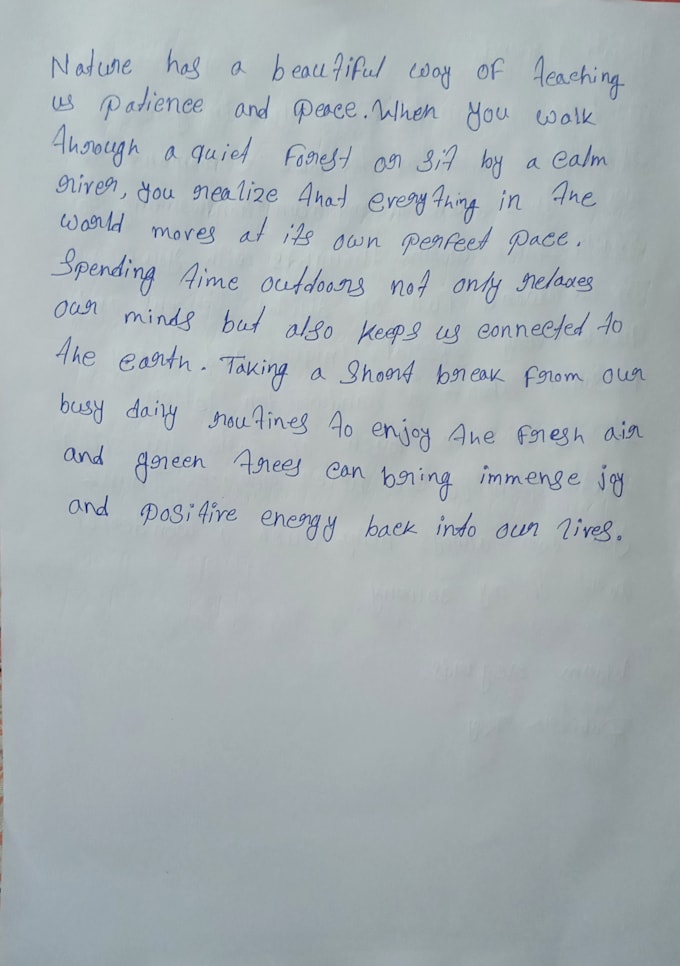 Nature has a beautiful way of teaching
us patience and peace. When you walk
through a quiet forest or sit by a calm
river, you realize that everything in the
world moves at its own perfect pace.
Spending time outdoors not only relaxes
our minds but also keeps us connected to
the earth. Taking a short break from our
busy daily routines to enjoy the fresh air
and green trees can bring immense joy
and positive energy back into our lives.